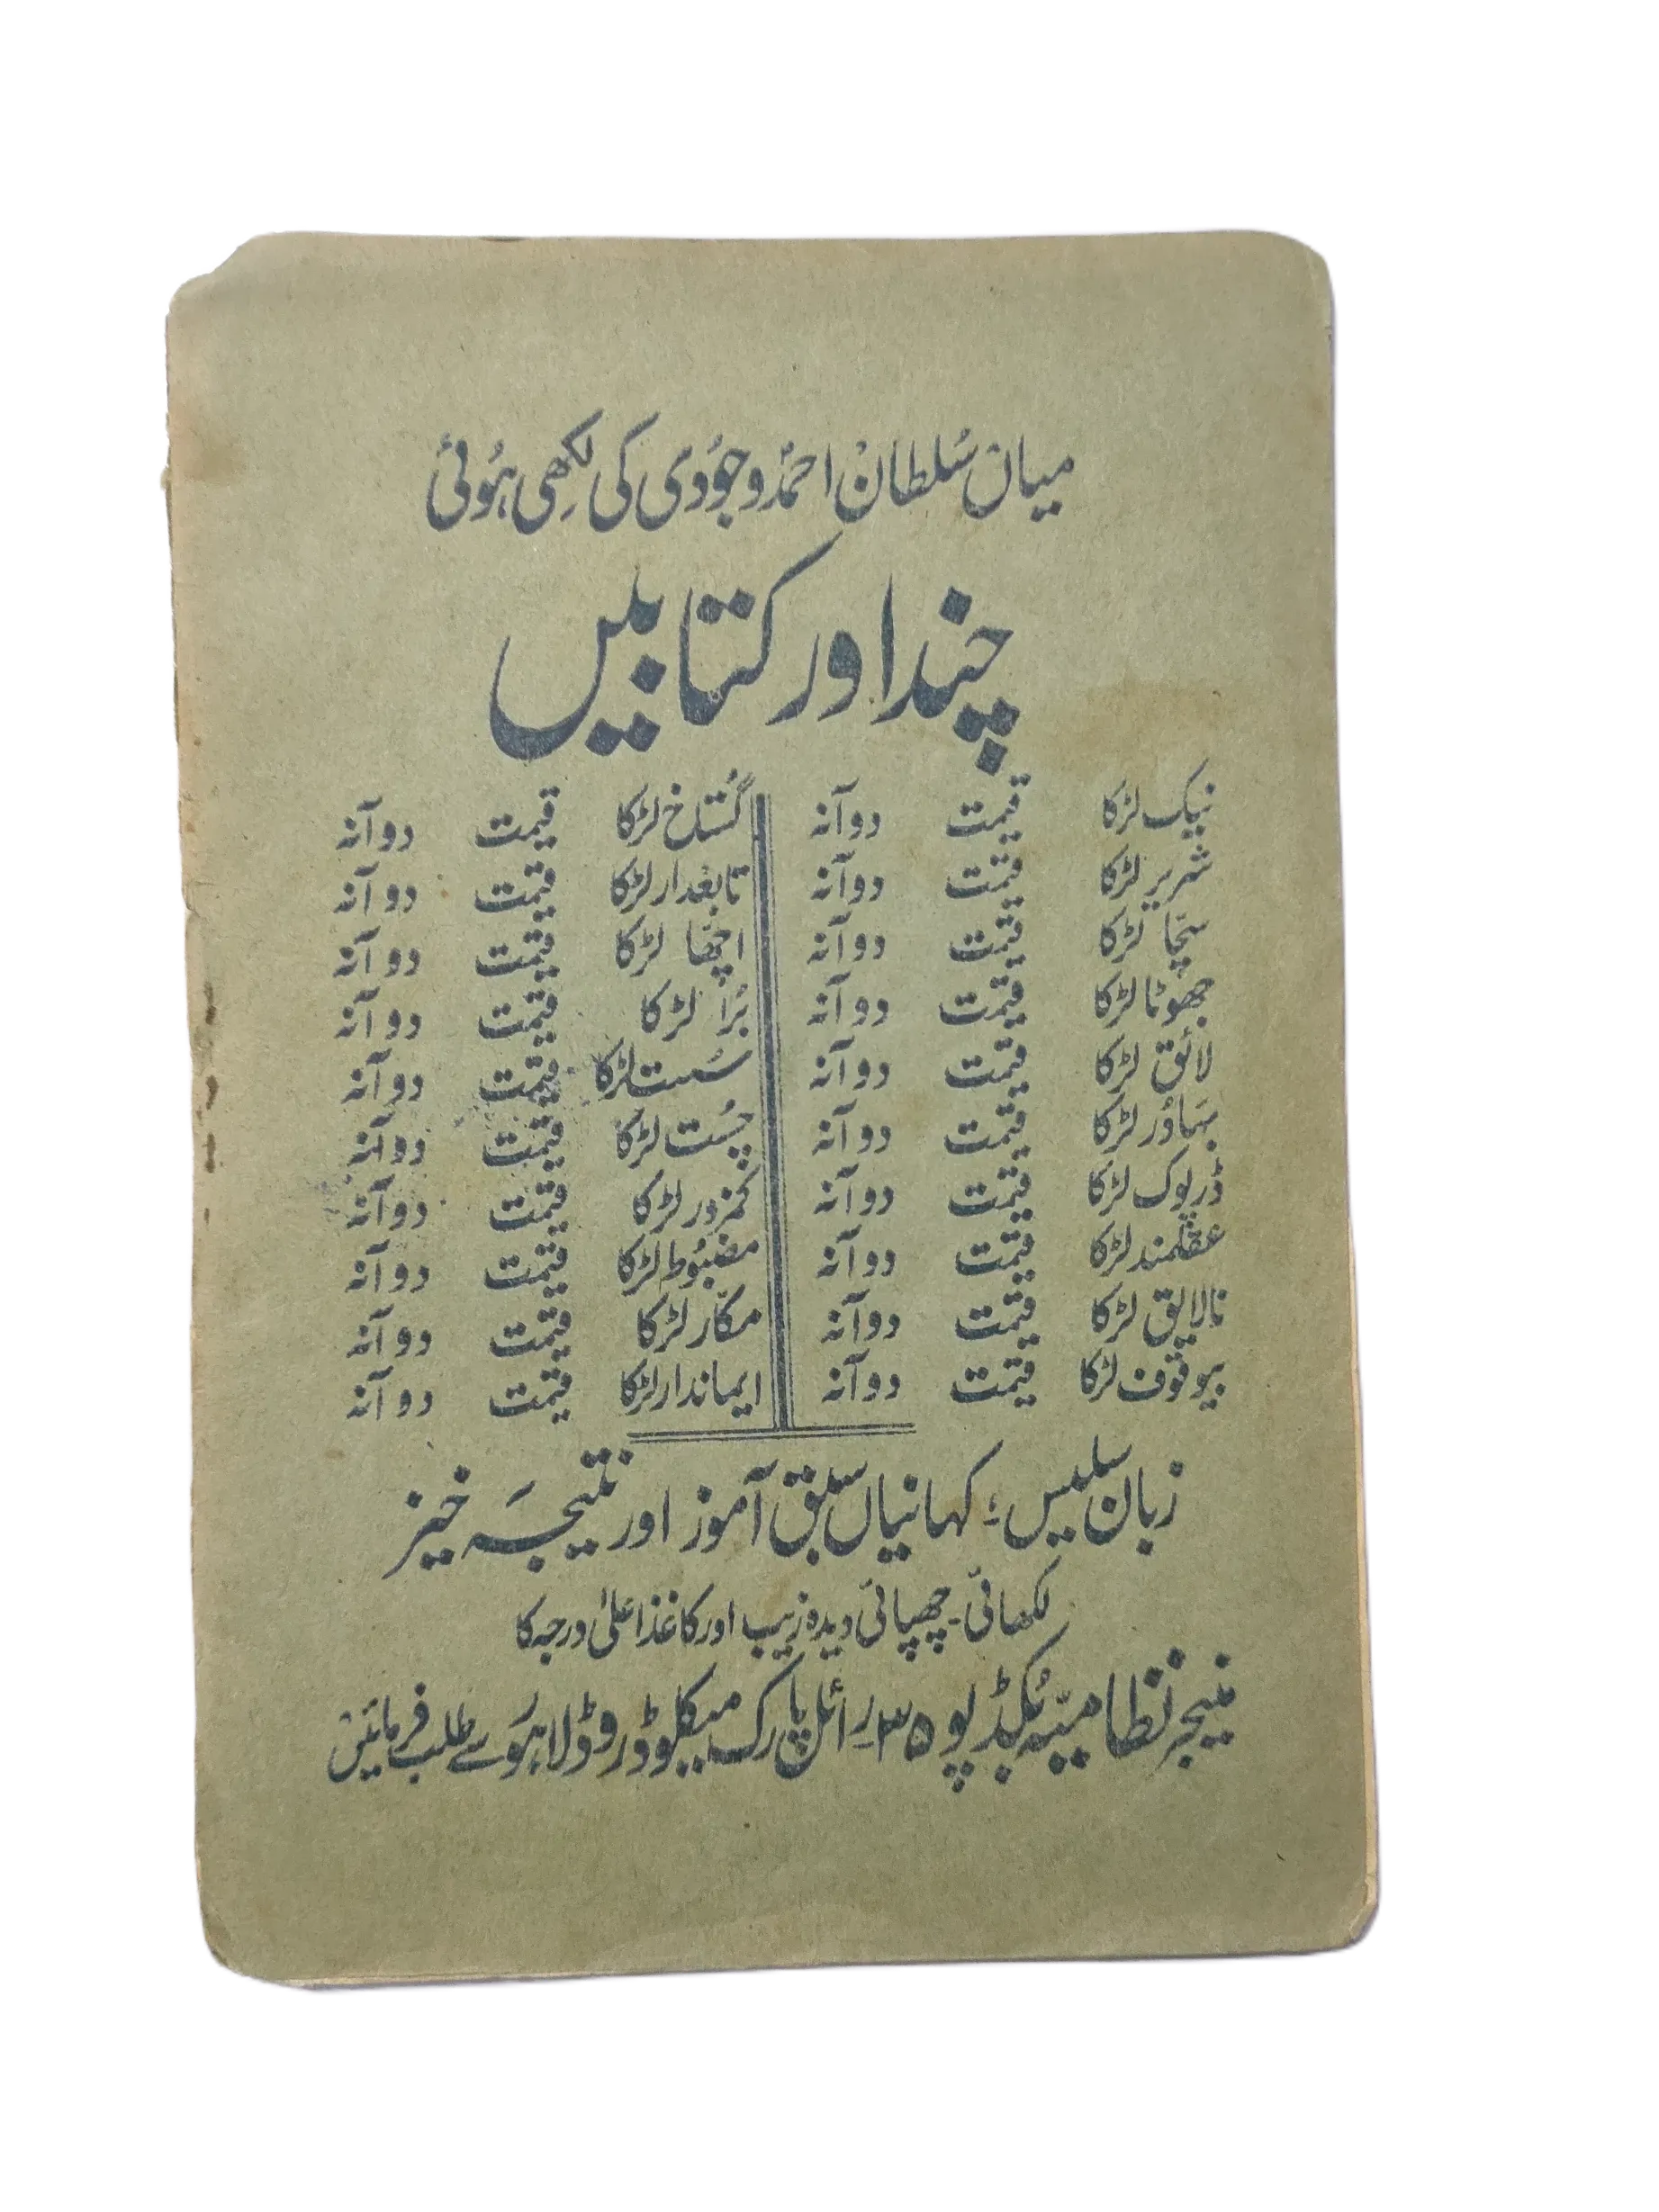 میاں سُلطان احمدؐ وجُودی کی لکھِی ہُوئی
چند اور کتابیں
نیک لڑکا قیمت دو آنہ
شریر لڑکا قیمت دو آنہ
سچّا لڑکا قیمت دو آنہ
جھوٹا لڑکا قیمت دو آنہ
لائق لڑکا قیمت دو آنہ
بہادُر لڑکا قیمت دو آنہ
ڈرپوک لڑکا قیمت دو آنہ
عقلمند لڑکا قیمت دو آنہ
نالایق لڑکا قیمت دو آنہ
بیوقوف لڑکا قیمت دو آنہ
گُستاخ لڑکا قیمت دو آنہ
تابعدار لڑکا قیمت دو آنہ
اچھّا لڑکا قیمت دو آنہ
بُرا لڑکا قیمت دو آنہ
سُست لڑکا قیمت دو آنہ
چُست لڑکا قیمت دو آنہ
کمزور لڑکا قیمت دو آنہ
مضبُوط لڑکا قیمت دو آنہ
مکّار لڑکا قیمت دو آنہ
ایماندار لڑکا قیمت دو آنہ
زبان سلیس؛ کہانیاں سبق آموز اور نتیجہ خیز
لکھائی۔ چھپائی دیدہ زیب اور کاغذ اعلیٰ درجہ کا
منیجر نظامیہّ بُکڈپو ۳۵ رائل پارک میکلوڈ روڈ لاہور سے طلب فرمائیں